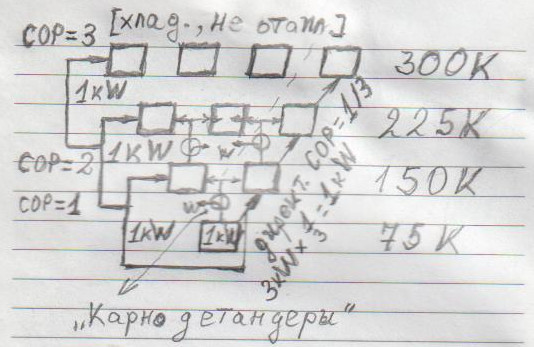 COP=3 [хлад., не отапл.]
300K
1kW
225K
1KW
w
COP=2
150K
COP=1
w
1kW
1kW
75K
директ. COP=1/3
3kW×1/3=1kW
„Карно детандеры"